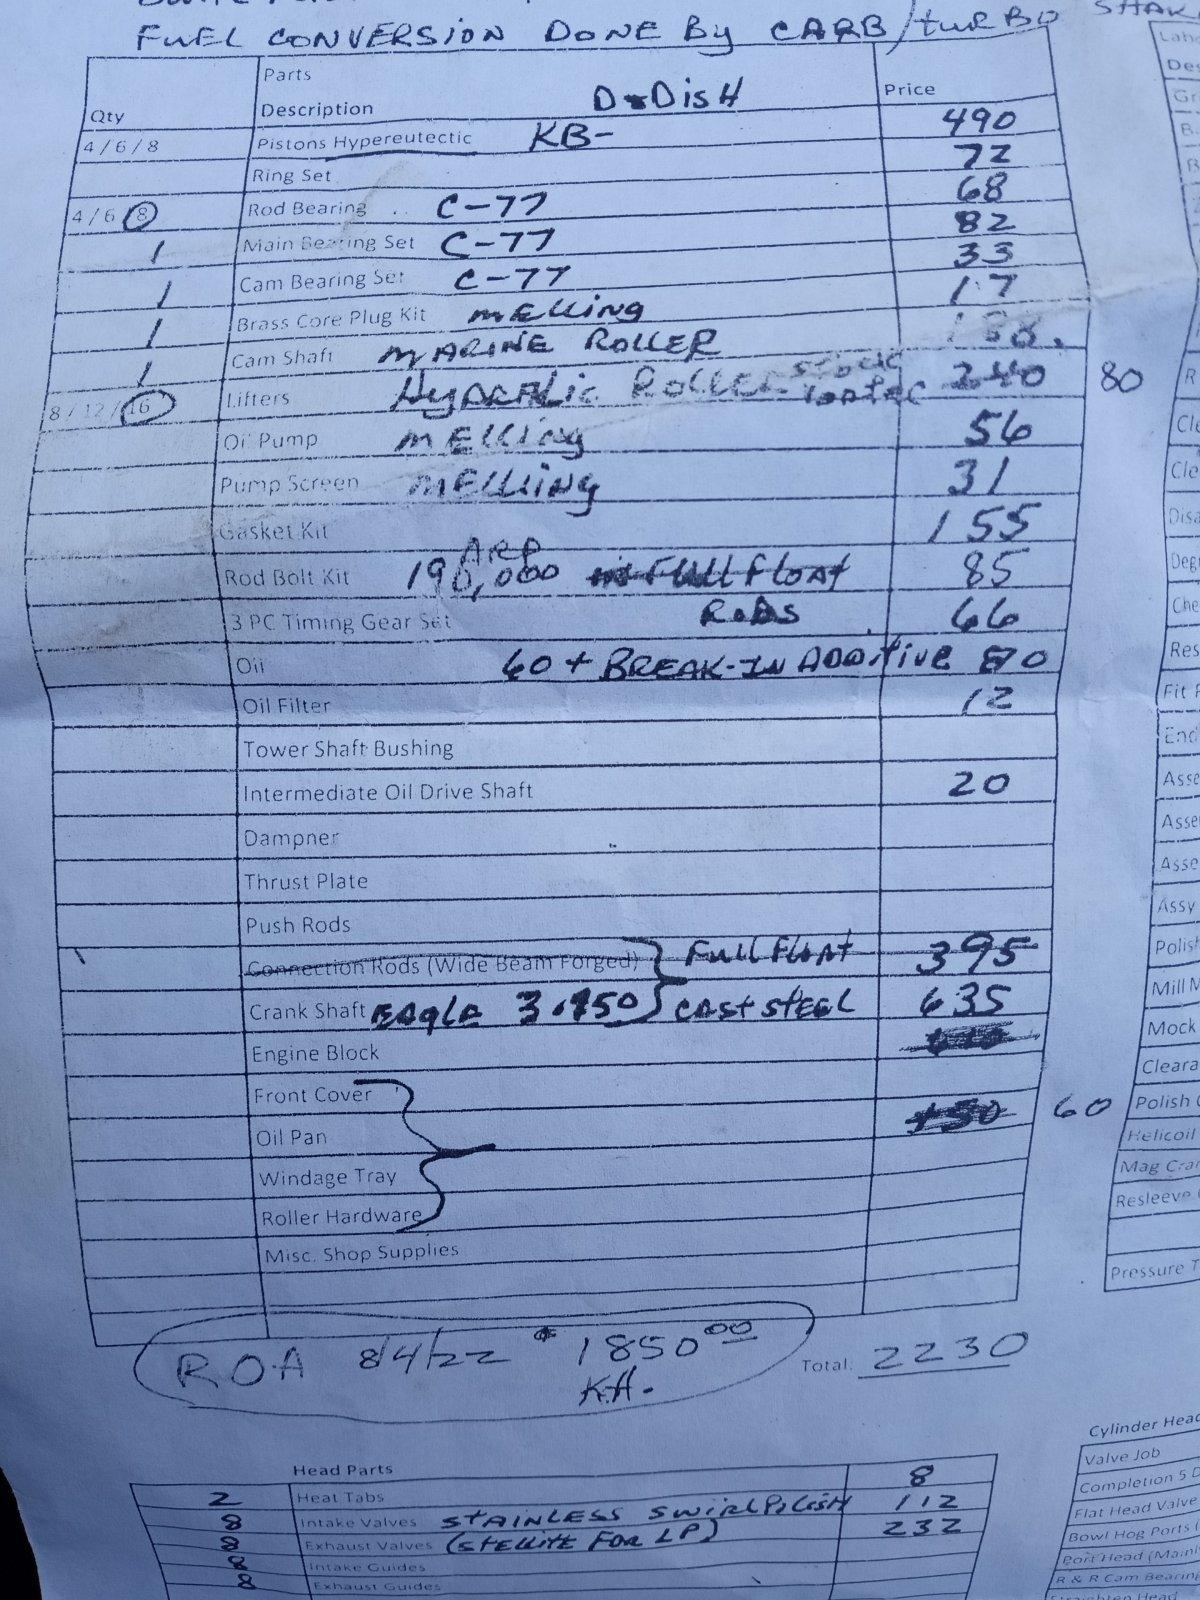 FUEL CONVERSION DONE By CARB/turbo SHAK
Qty Parts Description D-DisH Price
4 / 6 / 8 Pistons Hypereutectic KB- 490
Ring Set 72
4 / 6 / 8 Rod Bearing C-77 68
1 Main Bearing Set C-77 82
1 Cam Bearing Set C-77 33
1 Brass Core Plug Kit mElling 17
1 Cam Shaft mARINE ROLLER
8 / 12 / 16 Lifters HyDRAlic ROLLER 240 80
Oil Pump mElling 56
Pump Screen mElling 31
Gasket Kit 155
Rod Bolt Kit ARP 190,000 Full Float 85
3 PC Timing Gear Set RODS 66
Oil 60 + BREAK-IN ADDitive 70
Oil Filter 12
Tower Shaft Bushing
Intermediate Oil Drive Shaft 20
Dampner
Thrust Plate
Push Rods
Connection Rods (Wide Beam Forged) Full Float 395
Crank Shaft EAglE 3.750 CAST STEEL 635
Engine Block
Front Cover
Oil Pan 60
Windage Tray
Roller Hardware
Misc. Shop Supplies
ROA 8/4/22 1850.00
K.H.
Total: 2230
Head Parts
2 Heat Tabs 8
8 Intake Valves STAINLESS SWIRL POLISH 112
8 Exhaust Valves (STELLITE FOR LP) 232
8 Intake Guides
8 Exhaust Guides
Cle
Cle
Disa
Deg
Che
Res
Fit
End
Asse
Asse
Asse
Assy
Polish
Mill
Mock
Cleara
Polish
Helicoil
Mag Cran
Resleeve
Pressure T
Cylinder Head
Valve Job
Completion 5
Flat Head Valve
Bowl Hog Ports
Port Head (Main
R & R Cam Bearing